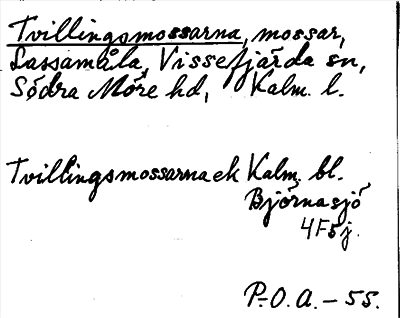 Tvillingsmossarna, mossar,
Lassamåla, Vissefjärda sn,
Södra Möre hd, Kalm. l.
Tvillingsmossarna ek Kalm. bl.
Björnasjö
4F5j.
P.O.A. – 55.